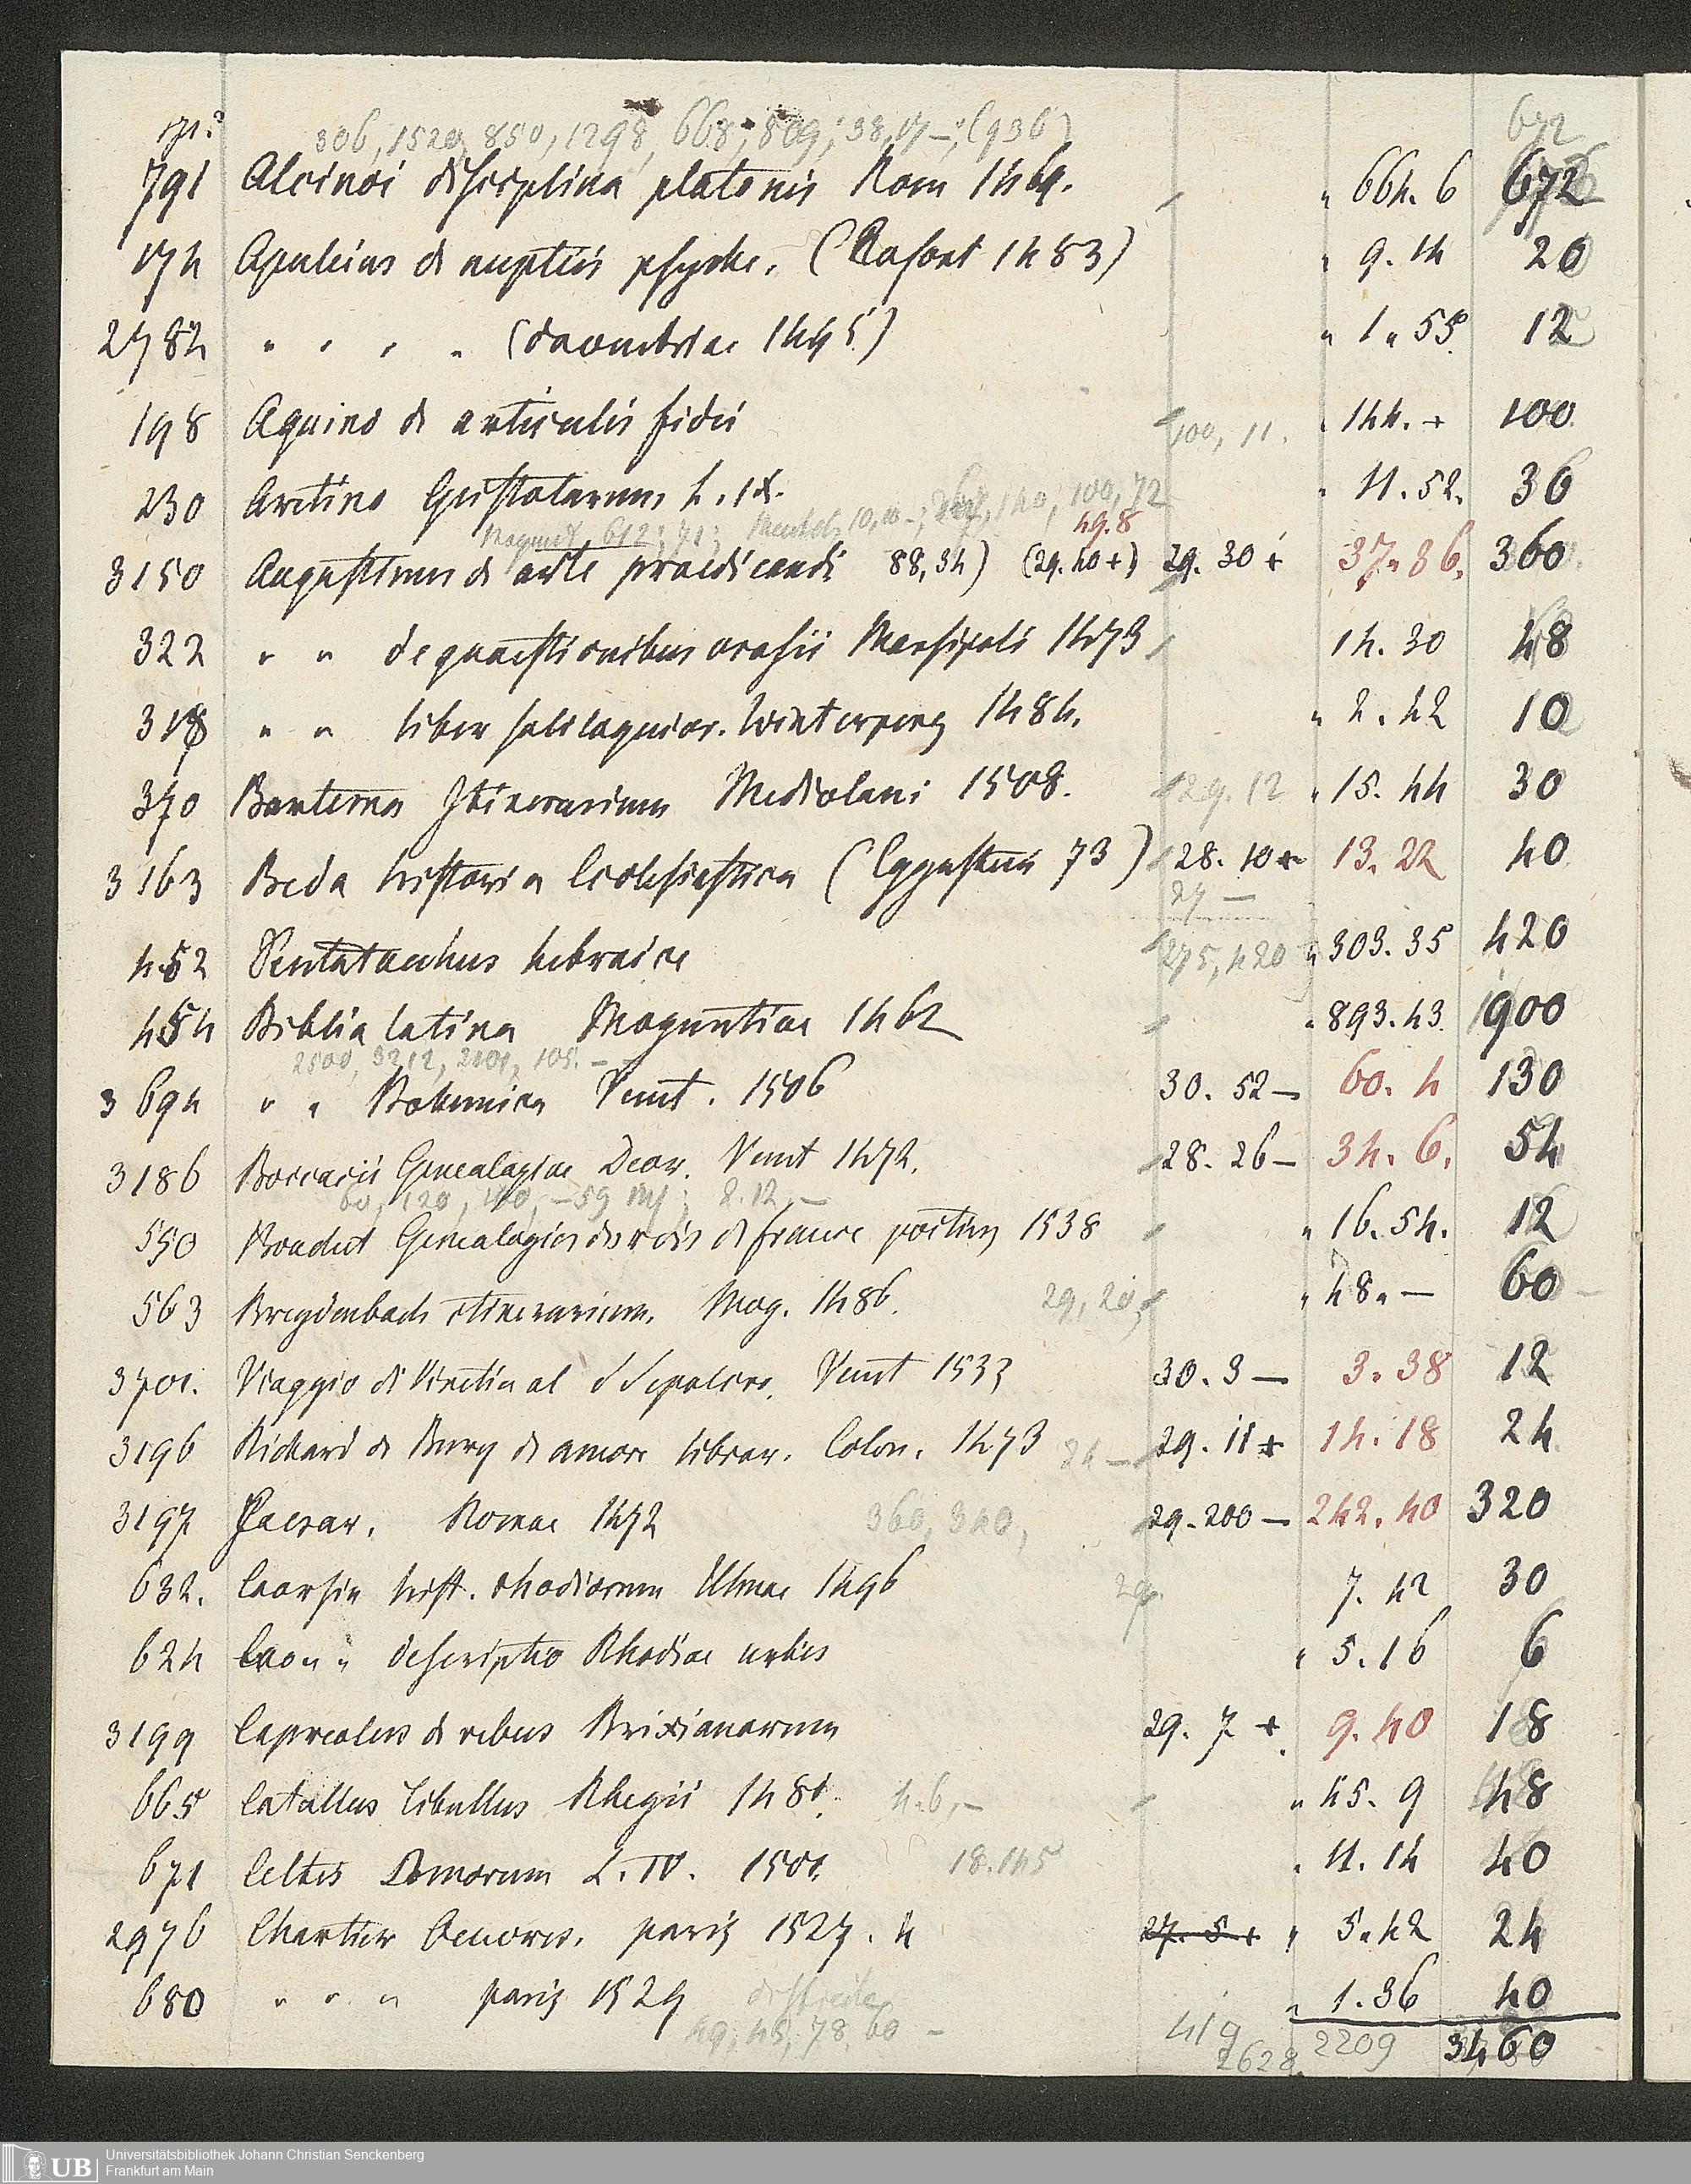 672
306, 1520, 850, 1298, 668, 809, 38,17 —, (936)
791 Alcinoi disciplina platonis Rom 1469. " 664. 6 672
174 Apuleius de nuptiis psyche. (Casort 1483) " 9. 14 20
2784 " " " " (daventriae 1495) " 1 " 55 12
198 Aquino de articulis fidei 100, 11. " 144. + 100
230 Aretino Epistolarum L. IX. " 11. 52. 36
612; 71; 10, 140, 100, 72
49.8
3150 Augustinus de arte praedicandi 88, 34) (29. 40 +) 29. 30 + 37. 36. 360
322 " " de quaestionibus orosii Monsterli 1473 14. 30 48
318 " " liber soliloquior. Winterperg 1484. " 2. 42 10
370 Bartema Itinerarium Mediolani 1508. 29. 12 " 15. 44 30
3163 Beda historia Ecclesiastica (Eggestein 73) 28. 10 + 13. 22 40
27 —
452 Pentateuchus hebraice 275, 420 " 303. 35 420
454 Biblia latina Moguntiae 1462 " 893. 43. 900
2500, 3212, 2101, 105. —
3694 " " Bohemica Venet. 1506 30. 52 — 60. 4 130
3186 Boccacii Genealogiae Deor. Venet 1472. 28. 26 — 34. 6. 54
60, 120, 100, — 59 8. 12, —
550 Bouchet Genealogies des rois de france poitiers 1538 " 16. 54. 12
563 Breydenbach itinerarium. Mog. 1486. 29, 20, " 48 " — 60
3701. Viaggio di Venetia al S Sepolcro. Venet 1533 30. 3 — 3. 38 12
3196 Richard de Bury de amore librar. Colon. 1473 24 — 29. 11 + 14. 18 24
3197 Caesar. Romae 1472 360, 340, 29. 200 — 242. 40 320
632. Caorsin hist. rhodiorum Ulmae 1496 29. 7. 42 30
624 Cao " " descriptio Rhodiae urbis " 5. 16 6
3199 Capreolus de rebus Brixianorum 29. 7 + 9. 40 18
665 Catullus Tibullus Rhegii 1481. 4. 6, — " 45. 9 48
671 Celtes Amorum L. IV. 1501. 18. 145 " 11. 14 40
2976 Chartier Oeuvres. paris 1527. 4 27. 5 + " 5. 42 24
680 " " " paris 1529 " 1. 36 40
49, 45, 78, 60 —
419 2628 2209 3460
UB Universitätsbibliothek Johann Christian Senckenberg
Frankfurt am Main